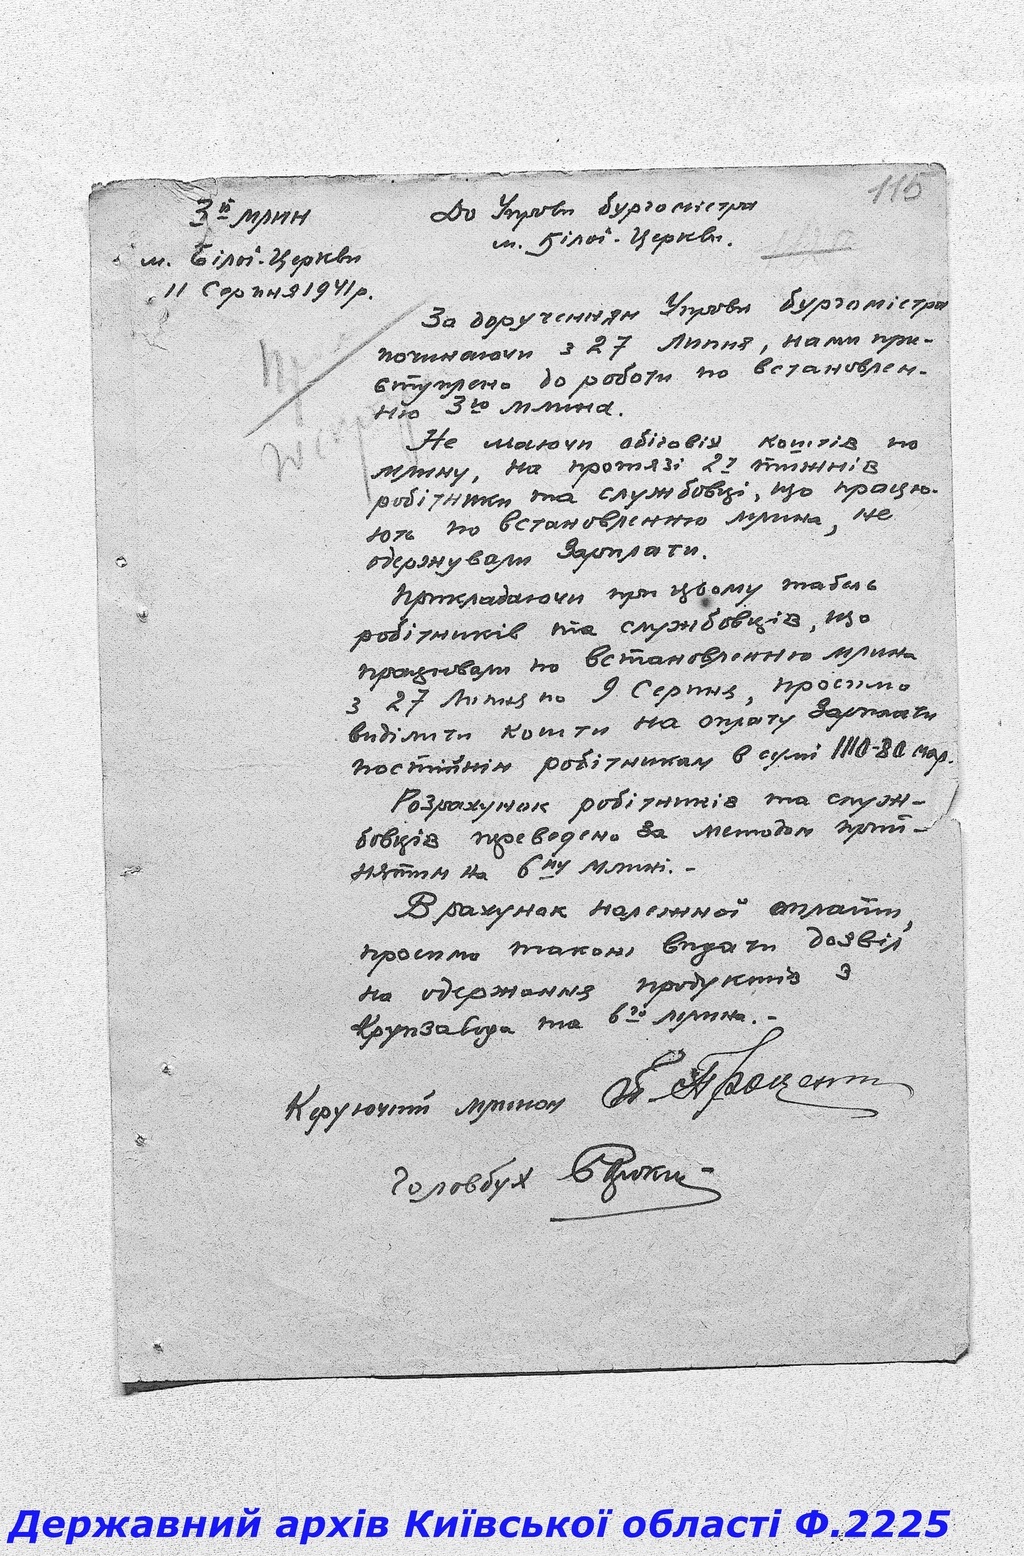 115
3й млин
м. Білої-Церкви
11 Серпня 1941р.
До Управи бургомістра
м. Білої-Церкви.
За дорученням Управи бургомістра
починаючи з 27 Липня, нами при-
ступлено до роботи по встановлен-
ню 3го млина.
Не маючи обігових коштів по
млину, на протязі 2х тижнів
робітники та службовці, що працю-
ють по встановленню млина, не
одержували зарплати.
Прикладаючи при цьому табель
робітників та службовців, що
працювали по встановленню млина
з 27 Липня по 9 Серпня, просимо
виділити кошти на оплату зарплати
постійнім робітникам в сумі 1110-80 мар.
Розрахунок робітників та служ-
бовців преведено за методом прий-
нятим на 6му млині.-
В рахунок належної оплати,
просимо також видати дозвіл
на одержання продуктів з
Крупзавода та 6го млина.-
Керуючий млином П. Процент
Головбух
Державний архів Київської області Ф.2225